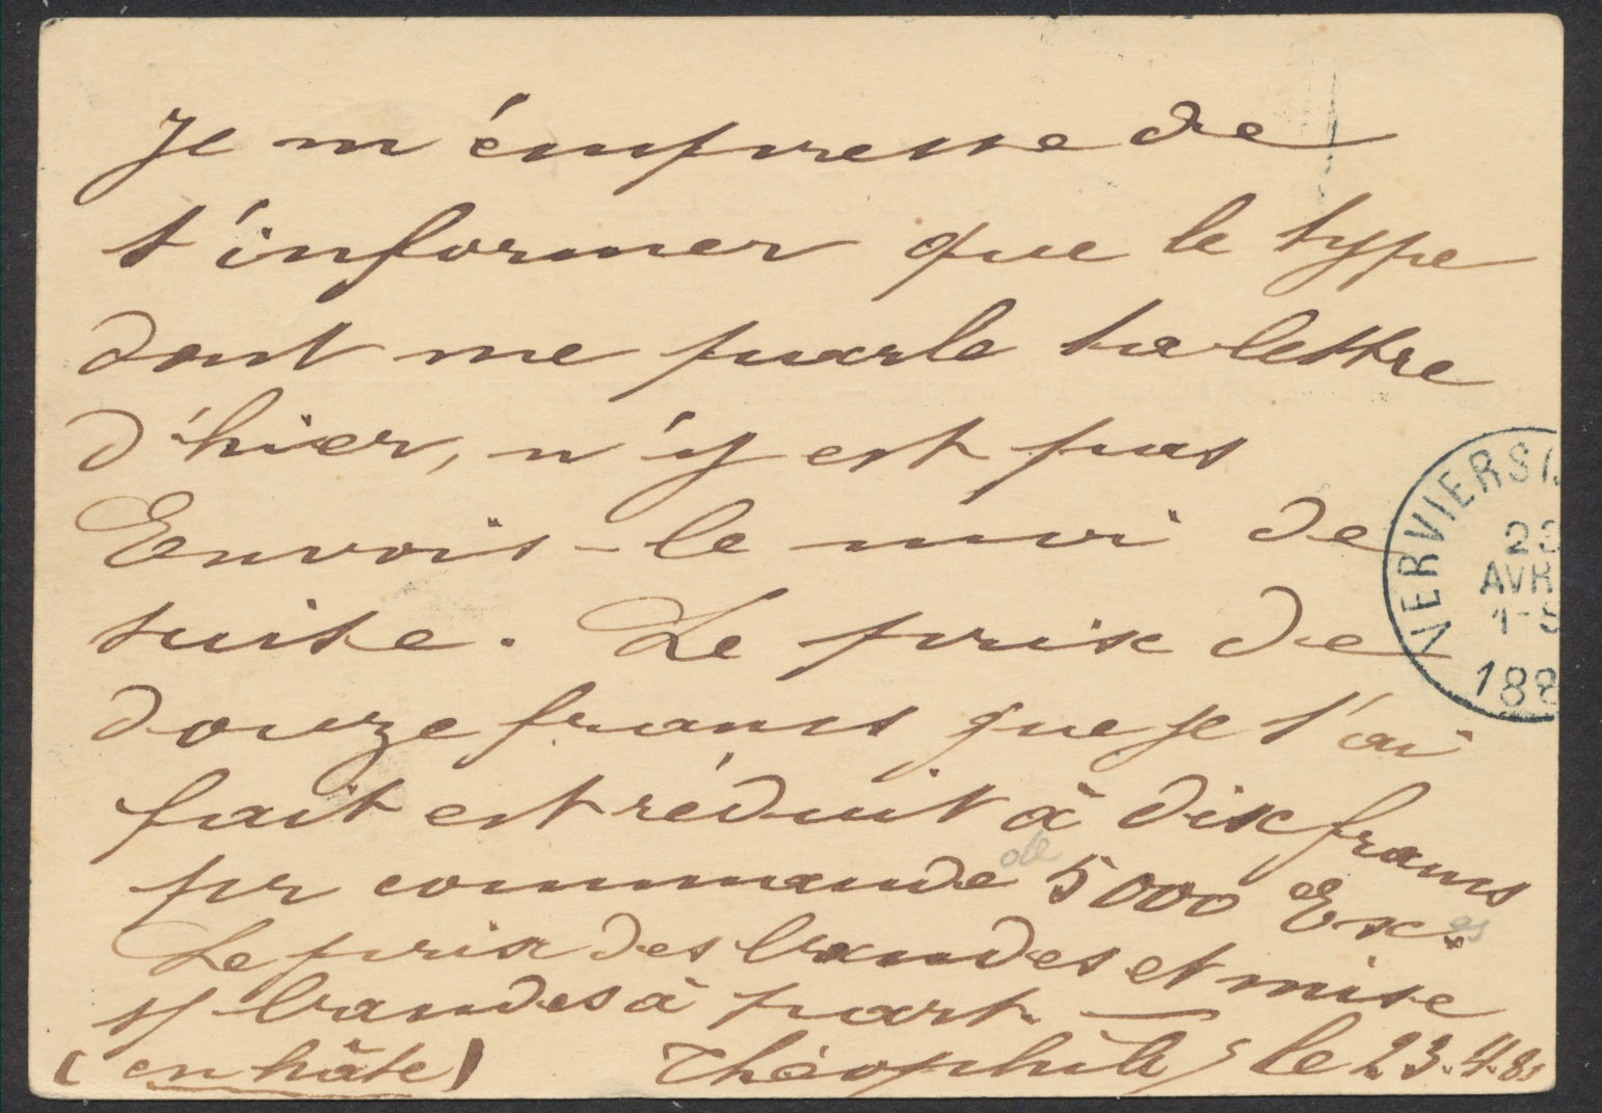 Je m'émpresse de
t'informer que le type
dont me parle ta lettre
d'hier, n'y est pas
Envois-le moi de
suite. Le prix de
douze francs que je t'ai
fait est réduit à dix francs
pr commande de 5000 Ex.es
Le prix des bandes et mise
s/ bandes à part. —
(en hâte) Théophile, le 23.4.8
VERVIERS
AVR
188